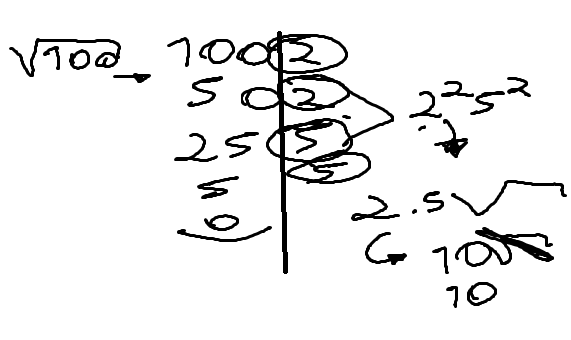 √100 → 100 | 2
50 | 2
25 | 5
5 | 5
0
2²5²
2.5√
10√
10